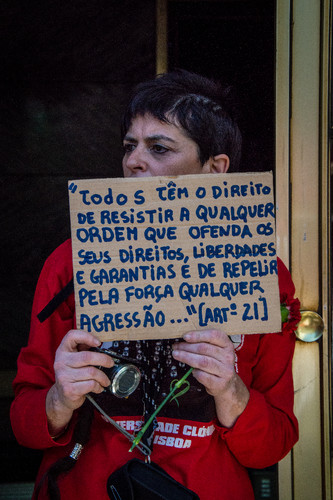 "TODOS TÊM O DIREITO
DE RESISTIR A QUALQUER
ORDEM QUE OFENDA OS
SEUS DIREITOS, LIBERDADES
E GARANTIAS E DE REPELIR
PELA FORÇA QUALQUER
AGRESSÃO..." (ARTº 21]
LISBOA